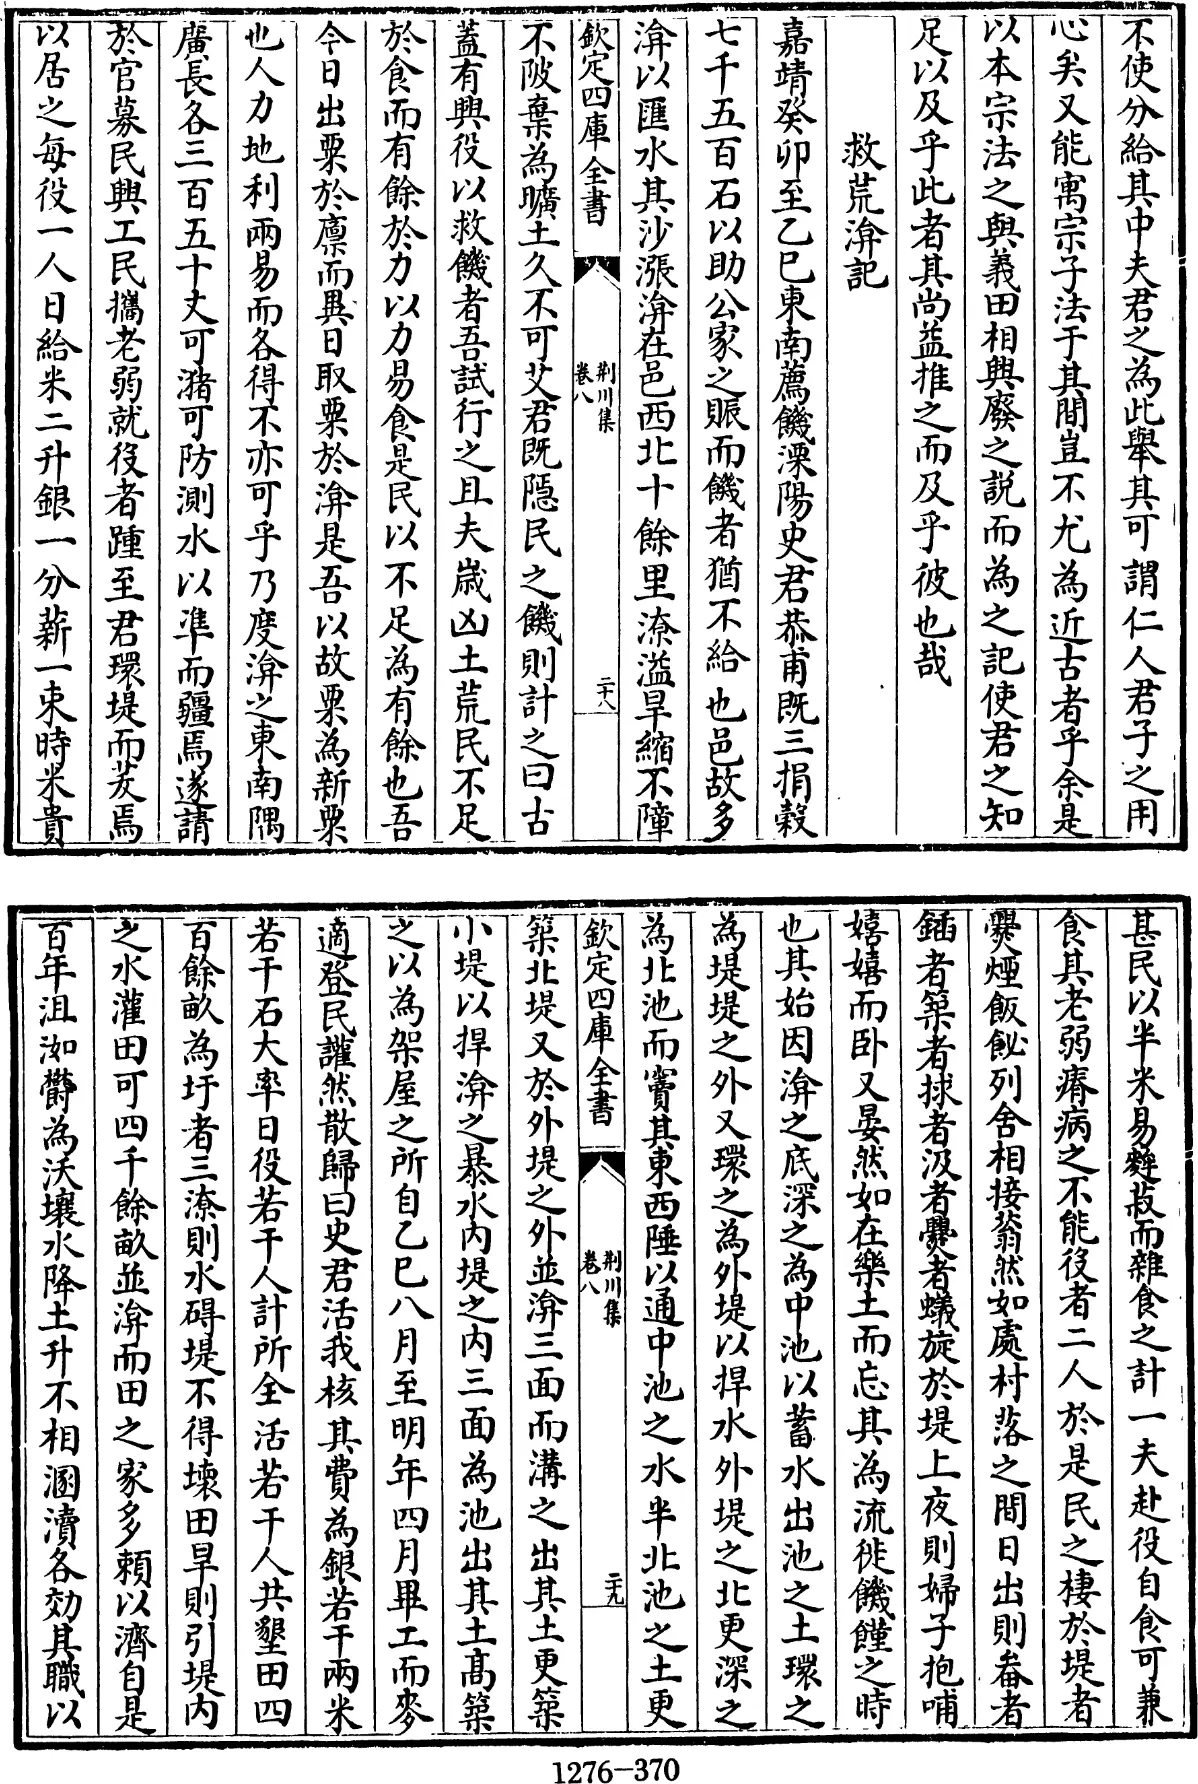 不使分給其中夫君之為此舉其可謂仁人君子之用
心矣又能寓宗子法于其間豈不尤為近古者乎余是
以本宗法之與義田相興廢之説而為之記使君之知
足以及乎此者其尚益推之而及乎彼也哉
救荒渰記
嘉靖癸卯至乙巳東南薦饑溧陽史君恭甫既三捐穀
七千五百石以助公家之賑而饑者猶不給也邑故多
渰以匯水其沙漲渰在邑西北十餘里潦溢旱縮不障
欽定四庫全書
荆川集
卷八
二十八
不陂棄為曠土久不可艾君既隱民之饑則計之曰古
蓋有興役以救饑者吾試行之且夫嵗凶土荒民不足
於食而有餘於力以力易食是民以不足為有餘也吾
今日出粟於廪而異日取粟於渰是吾以故粟為新粟
也人力地利兩易而各得不亦可乎乃度渰之東南隅
廣長各三百五十丈可瀦可防測水以凖而疆焉遂請
於官募民興工民攜老弱就役者踵至君環堤而茇焉
以居之每役一人日給米二升銀一分薪一束時米貴
甚民以半米易麰菽而雜食之計一夫赴役自食可兼
食其老弱瘠病之不能役者二人於是民之棲於堤者
爨煙飯飶列舍相接蓊然如處村落之間日出則畚者
鍤者築者捄者汲者爨者蟻旋於堤上夜則婦子抱哺
嬉嬉而卧又晏然如在樂土而忘其為流徙饑饉之時
也其始因渰之底深之為中池以蓄水出池之土環之
為堤堤之外又環之為外堤以捍水外堤之北更深之
為北池而竇其東西陲以通中池之水半北池之土更
欽定四庫全書
荆川集
卷八
二十九
築北堤又於外堤之外並渰三面而溝之出其土更築
小堤以捍渰之暴水内堤之内三面為池出其土髙築
之以為架屋之所自乙巳八月至明年四月畢工而麥
適登民讙然散歸曰史君活我核其費為銀若干兩米
若干石大率日役若干人計所全活若干人共墾田四
百餘畝為圩者三潦則水碍堤不得壊田旱則引堤内
之水灌田可四千餘畝並渰而田之家多頼以濟自是
百年沮洳欝為沃壤水降土升不相溷瀆各効其職以
1276-370